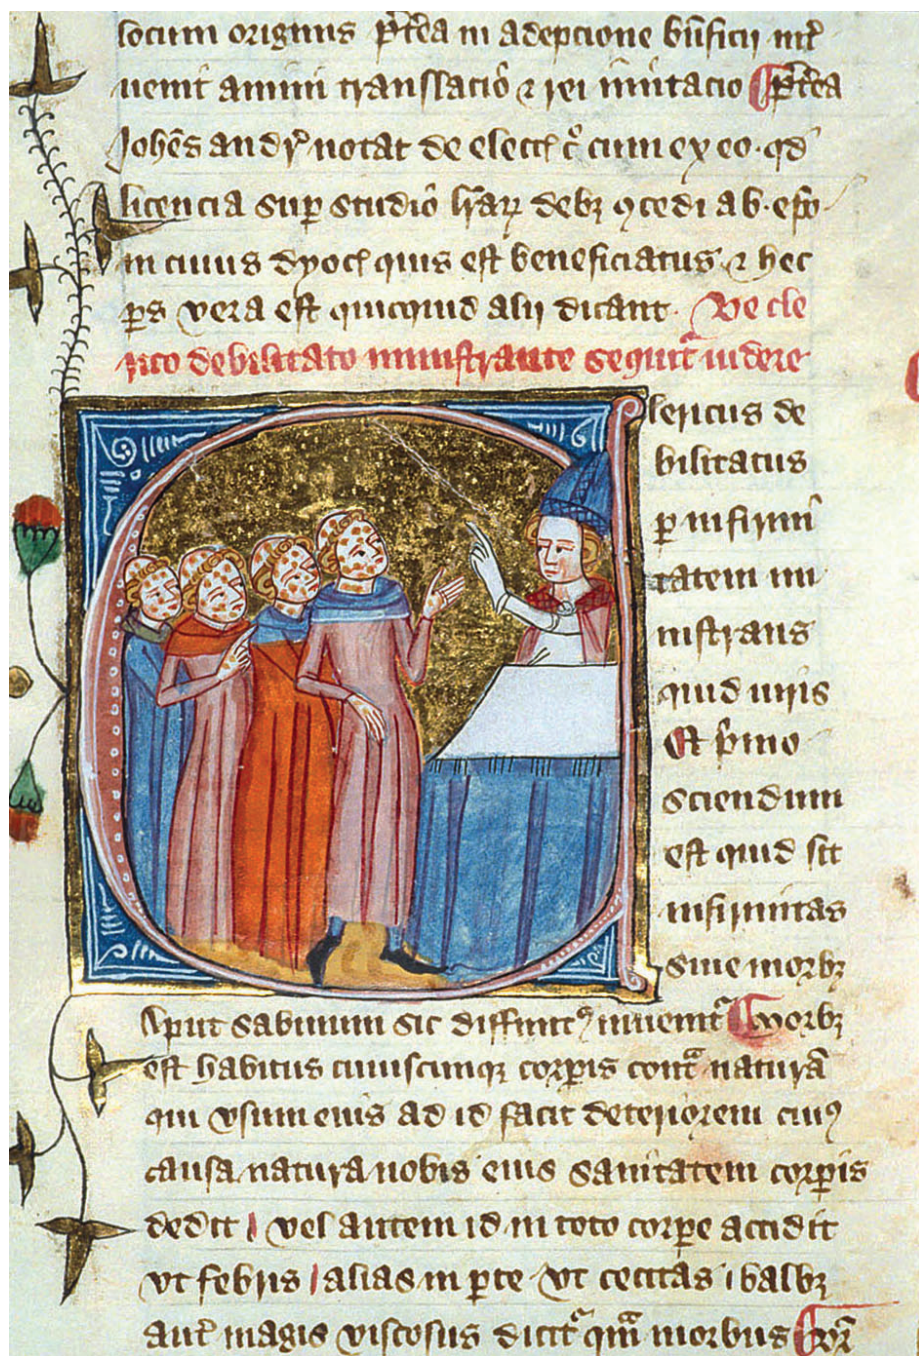 locum originis p̄t̄ea in adepcione b̄nficii int̉
uenit animi translatio ̉ ⁊ rei ī̄mitacio ¶ p̄t̄ea
Joh̄es andr̉ notat de elect̉ c̉ cum ex eo · qd̉
licencia sup studio l̄raꝝ debꝫ ꝯcedi ab · ep̄o
in cuius dyoc̉ quis est beneficiatus ⁊ hec
ps̄ vera est quicquid alii dicant · De cle
rico debilitato ministrante sequit̉ videre
lericus de
bilitatus
ꝑ infirmi
tatem mi
nistrans
quid iuris
Et p̉mo
sciendum
est quid sit
infirmitas
siue morbꝫ
Aput sabinum sic diffinitꝰ inuenit̉ ¶ morbꝫ
est habitus cuiuscunqꝫ corꝑis cont̉ naturā
qui vsum eius ad id facit deteriorem cuiꝰ
causa natura nobis eius sanitatem corꝑis
dedit vel autem id in toto corꝑe accidit
vt febris alias in ꝑte vt cecitas balbꝫ
aut̄ magis viscosus dicit̉ qm̄ morbus